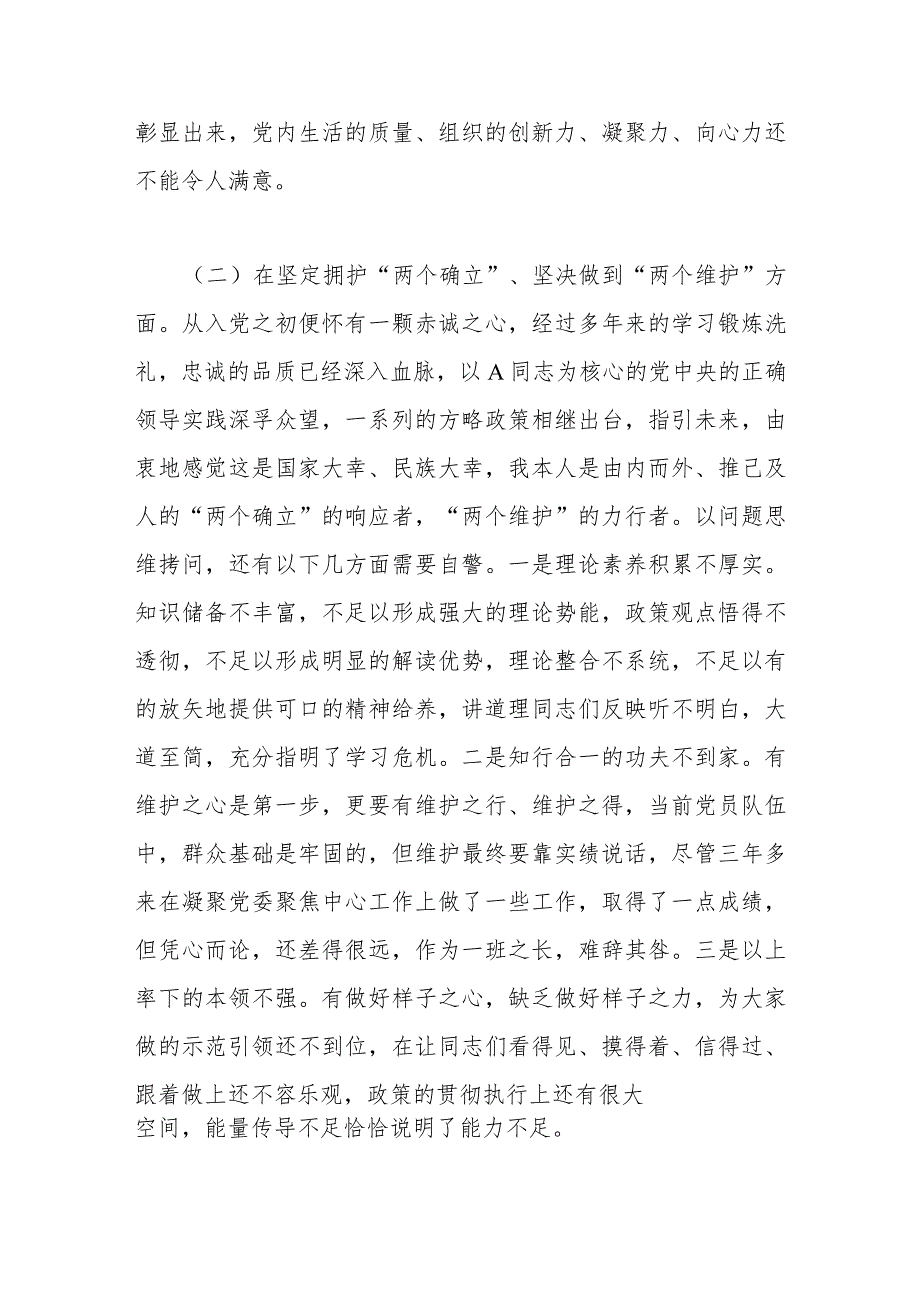 彰显出来，党内生活的质量、组织的创新力、凝聚力、向心力还
不能令人满意。
（二）在坚定拥护“两个确立”、坚决做到“两个维护”方
面。从入党之初便怀有一颗赤诚之心，经过多年来的学习锻炼洗
礼，忠诚的品质已经深入血脉，以 A 同志为核心的党中央的正确
领导实践深孚众望，一系列的方略政策相继出台，指引未来，由
衷地感觉这是国家大幸、民族大幸，我本人是由内而外、推己及
人的“两个确立”的响应者，“两个维护”的力行者。以问题思
维拷问，还有以下几方面需要自警。一是理论素养积累不厚实。
知识储备不丰富，不足以形成强大的理论势能，政策观点悟得不
透彻，不足以形成明显的解读优势，理论整合不系统，不足以有
的放矢地提供可口的精神给养，讲道理同志们反映听不明白，大
道至简，充分指明了学习危机。二是知行合一的功夫不到家。有
维护之心是第一步，更要有维护之行、维护之得，当前党员队伍
中，群众基础是牢固的，但维护最终要靠实绩说话，尽管三年多
来在凝聚党委聚焦中心工作上做了一些工作，取得了一点成绩，
但凭心而论，还差得很远，作为一班之长，难辞其咎。三是以上
率下的本领不强。有做好样子之心，缺乏做好样子之力，为大家
做的示范引领还不到位，在让同志们看得见、摸得着、信得过、
跟着做上还不容乐观，政策的贯彻执行上还有很大
空间，能量传导不足恰恰说明了能力不足。